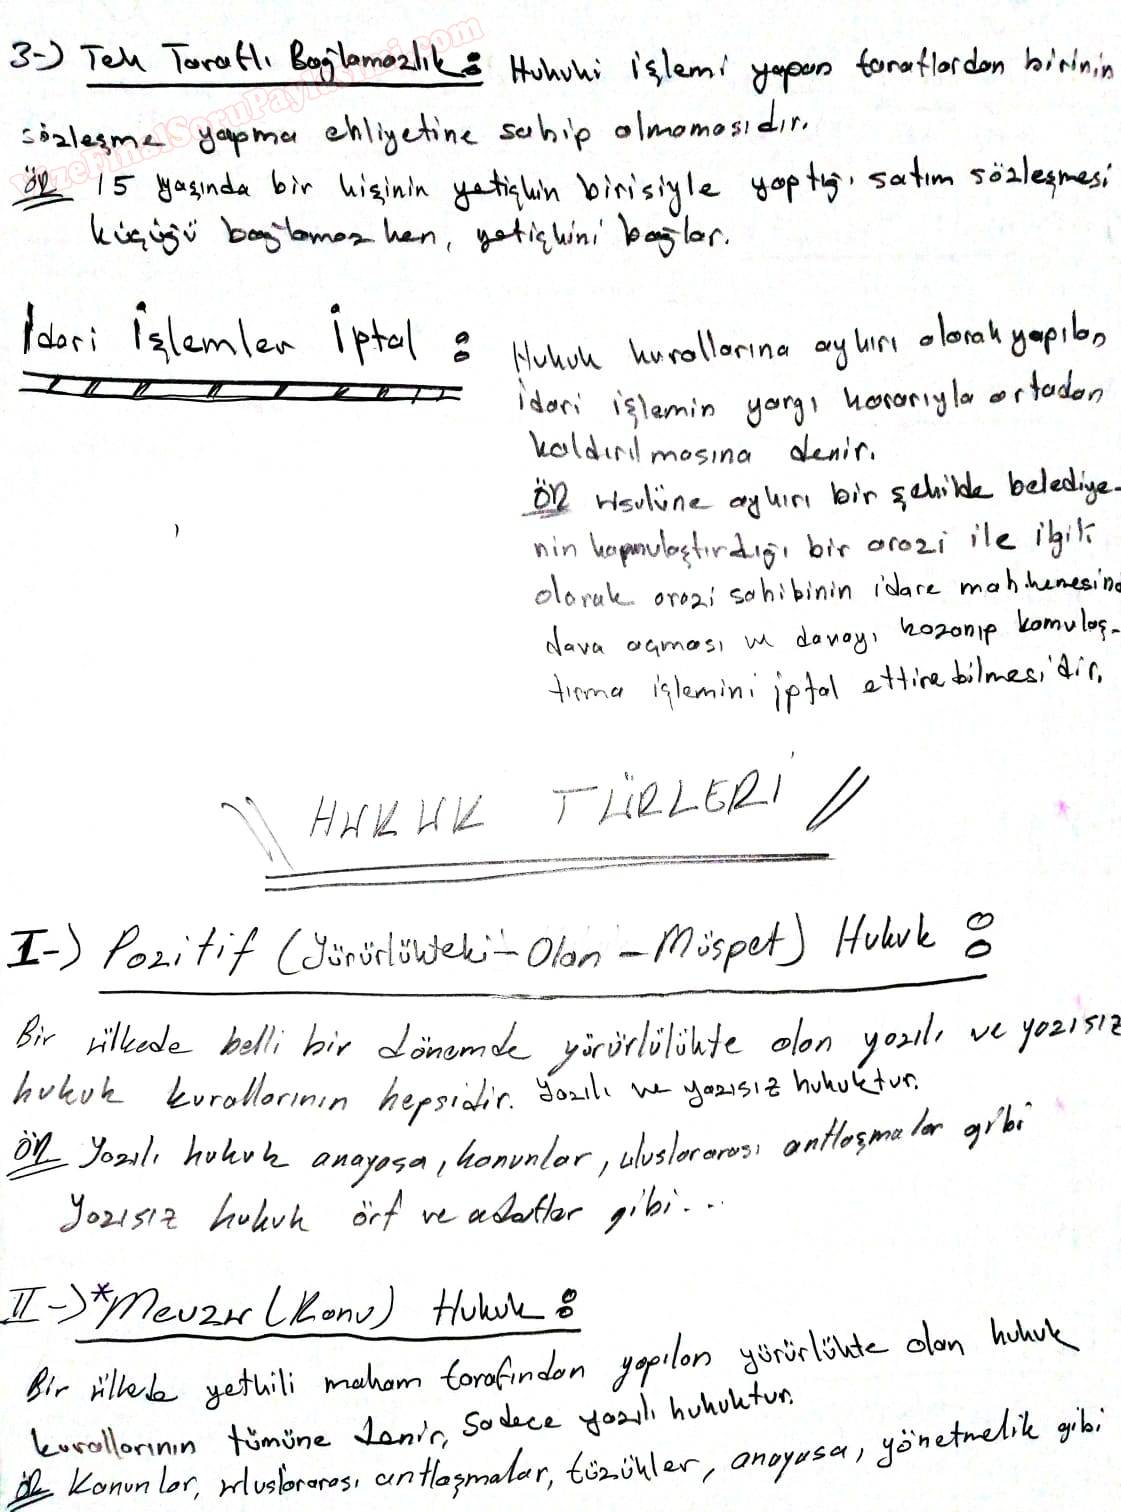 VizeFinalSoruPaylasimi.com
3-) Tek Taraflı Bağlamazlık: Hukuki işlemi yapan taraflardan birinin
sözleşme yapma ehliyetine sahip olmamasıdır.
ÖR 15 yaşında bir kişinin yetişkin birisiyle yaptığı satım sözleşmesi
küçüğü bağlamaz ken, yetişkini bağlar.
İdari İşlemler İptal : Hukuk kurallarına aykırı olarak yapılan
İdari işlemin yargı kararıyla ortadan
kaldırılmasına denir.
ÖR usulüne aykırı bir şekilde belediye-
nin kamulaştırdığı bir arazi ile ilgili
olarak arazi sahibinin idare mahkemesind
dava açması ve davayı kazanıp kamulaş-
tırma işlemini iptal ettirebilmesi'dir.
\\ HUKUK TÜRLERİ //
I-) Pozitif (Yürürlükteki - Olan - Müspet) Hukuk :
Bir ülkede belli bir dönemde yürürlülükte olan yazılı ve yazısız
hukuk kurallarının hepsidir. Yazılı ve yazısız hukuktur.
ÖR Yazılı hukuk anayasa, kanunlar, uluslararası antlaşmalar gibi
Yazısız hukuk örf ve adetler gibi...
II-) *Mevzu (Konu) Hukuk :
Bir ülkede yetkili makam tarafından yapılan yürürlükte olan hukuk
kurallarının tümüne denir, Sadece yazılı hukuktur.
ÖR Kanunlar, uluslararası antlaşmalar, tüzükler, anayasa, yönetmelik gibi